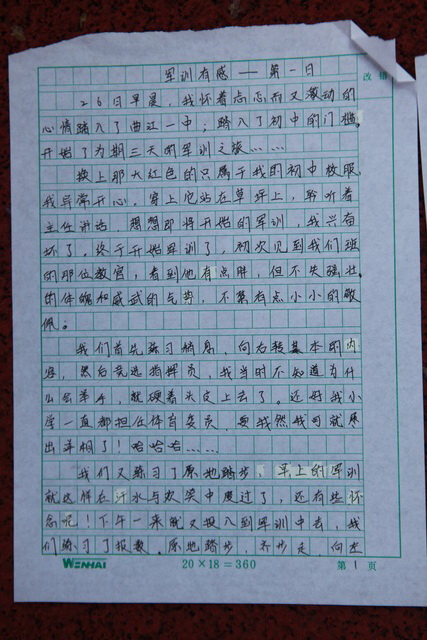 军训有感——第一日
改错
26日早晨，我怀着忐忑而又激动的
心情踏入了曲江一中；踏入了初中的门槛。
开始了为期三天的军训之旅……
换上那大红色的只属于我的初中校服，
我异常开心，穿上它站在草坪上，聆听着
主任讲话，想想即将开始的军训，我兴奋
坏了。终于开始军训了，初次见到我们班
的那位教官，看到他有点胖，但不失强壮
的体魄和威武的气势，不禁有点小小的敬
佩。
我们首先练习稍息，向右转基本的内
容，然后竞选指挥员，我当时不知道为什
么会举手，就硬着头皮上去了。还好我小
学一直都担任体育委员，要我然我可就是
出洋相了！哈哈哈……
我们又练习了原地踏步，早上的军训
就这样在汗水与欢笑中度过了，还有些怀
念呢！下午一来就又投入到军训中去，我
们练习了报数，原地踏步，齐步走，向左
WENHAI
20×18=360
第1页